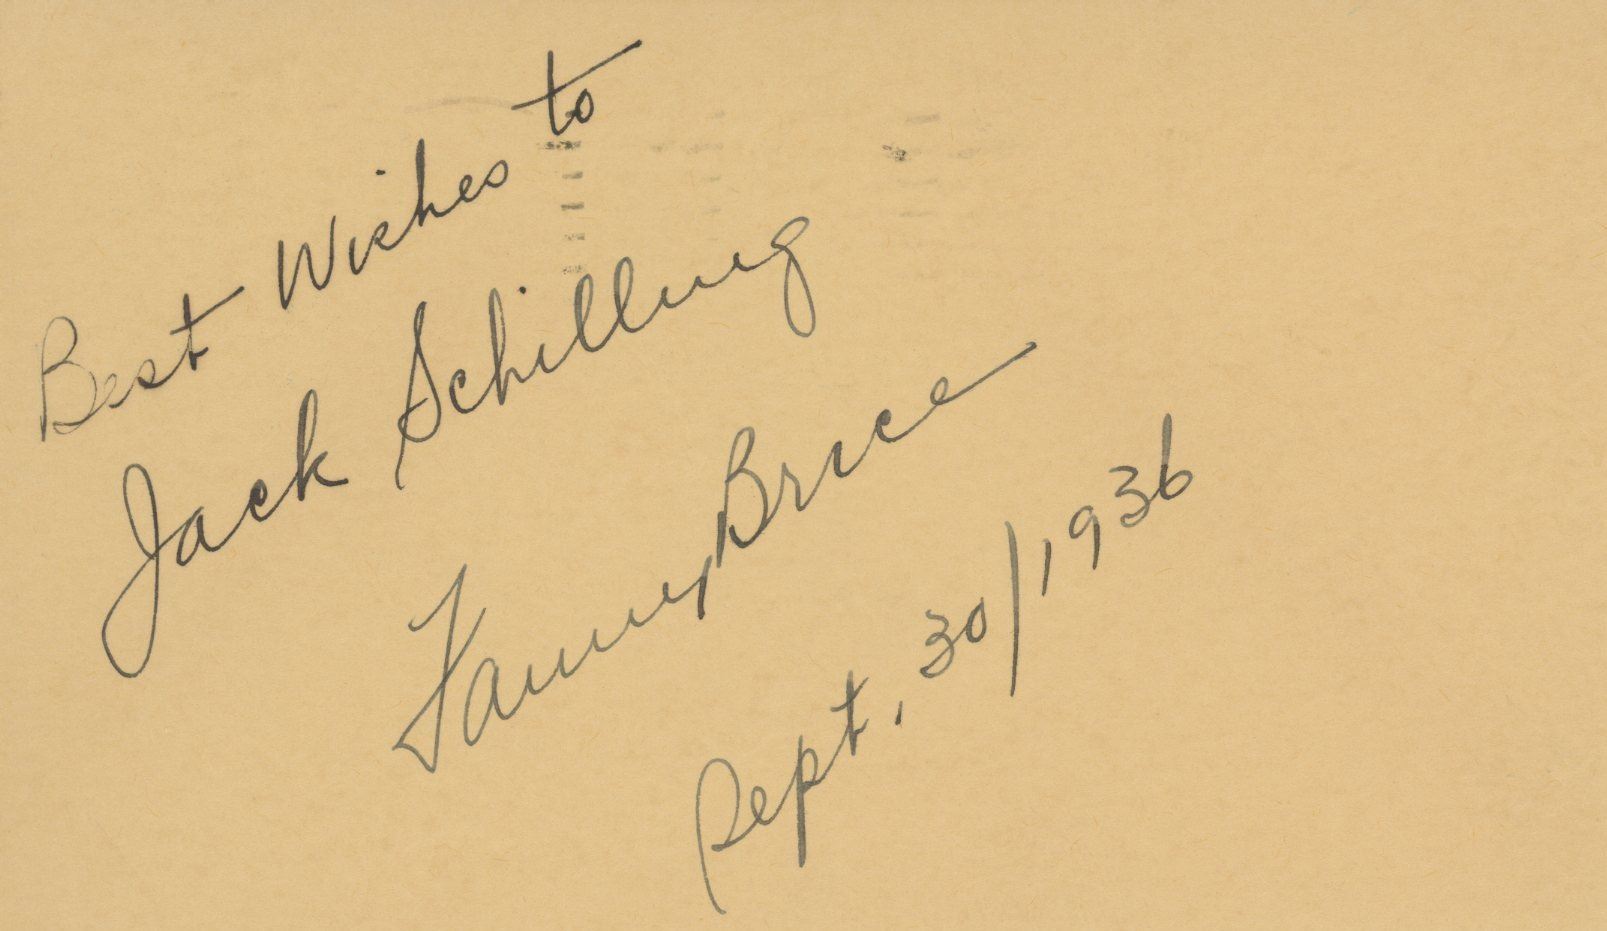 Best Wishes to
Jack Schilling
Fanny Brice
Sept. 30/1936